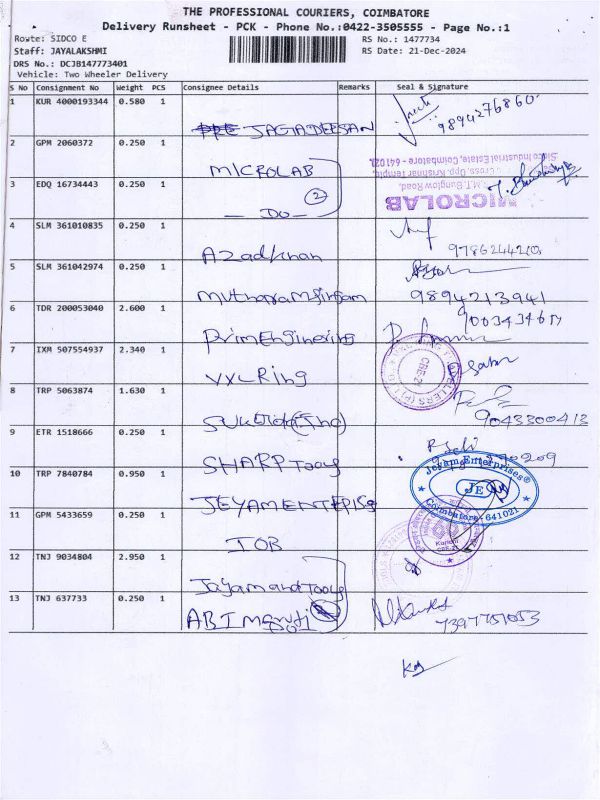 THE PROFESSIONAL COURIERS, COIMBATORE
Delivery Runsheet - PCK - Phone No.:0422-3505555 - Page No.:1
Route: SIDCO E
RS No.: 1477734
Staff: JAYALAKSHMI
RS Date: 21-Dec-2024
DRS No.: DCJB147773401
Vehicle: Two Wheeler Delivery
S No Consignment No Weight PCS Consignee Details Remarks Seal & Signature
1 KUR 4000193344 0.580 1 JAGADEESAN 9894276860
2 GPM 2060372 0.250 1 MICROLAB
Sidco Industrial Estate, Coimbatore - 641021.
Cross, Opp. Krishnar Temple,
M.T. Bunglow Road,
MICROLAB
3 EDQ 16734443 0.250 1 - DO - 2
4 SLM 361010835 0.250 1 Azadkhan
5 SLM 361042974 0.250 1 9894213941
6 TDR 200053040 2.600 1
7 IXM 507554937 2.340 1 VXL Ring
CBE-21
8 TRP 5063874 1.630 1 9043300413
9 ETR 1518666 0.250 1 SHARP Tools
10 TRP 7840784 0.950 1 JEYAM ENTEPISE
Jeyam Enterprises
JE
Coimbatore - 641021
11 GPM 5433659 0.250 1 IOB
12 TNJ 9034804 2.950 1 Jayam and Tools
13 TNJ 637733 0.250 1 ABI Maruti
7397751053